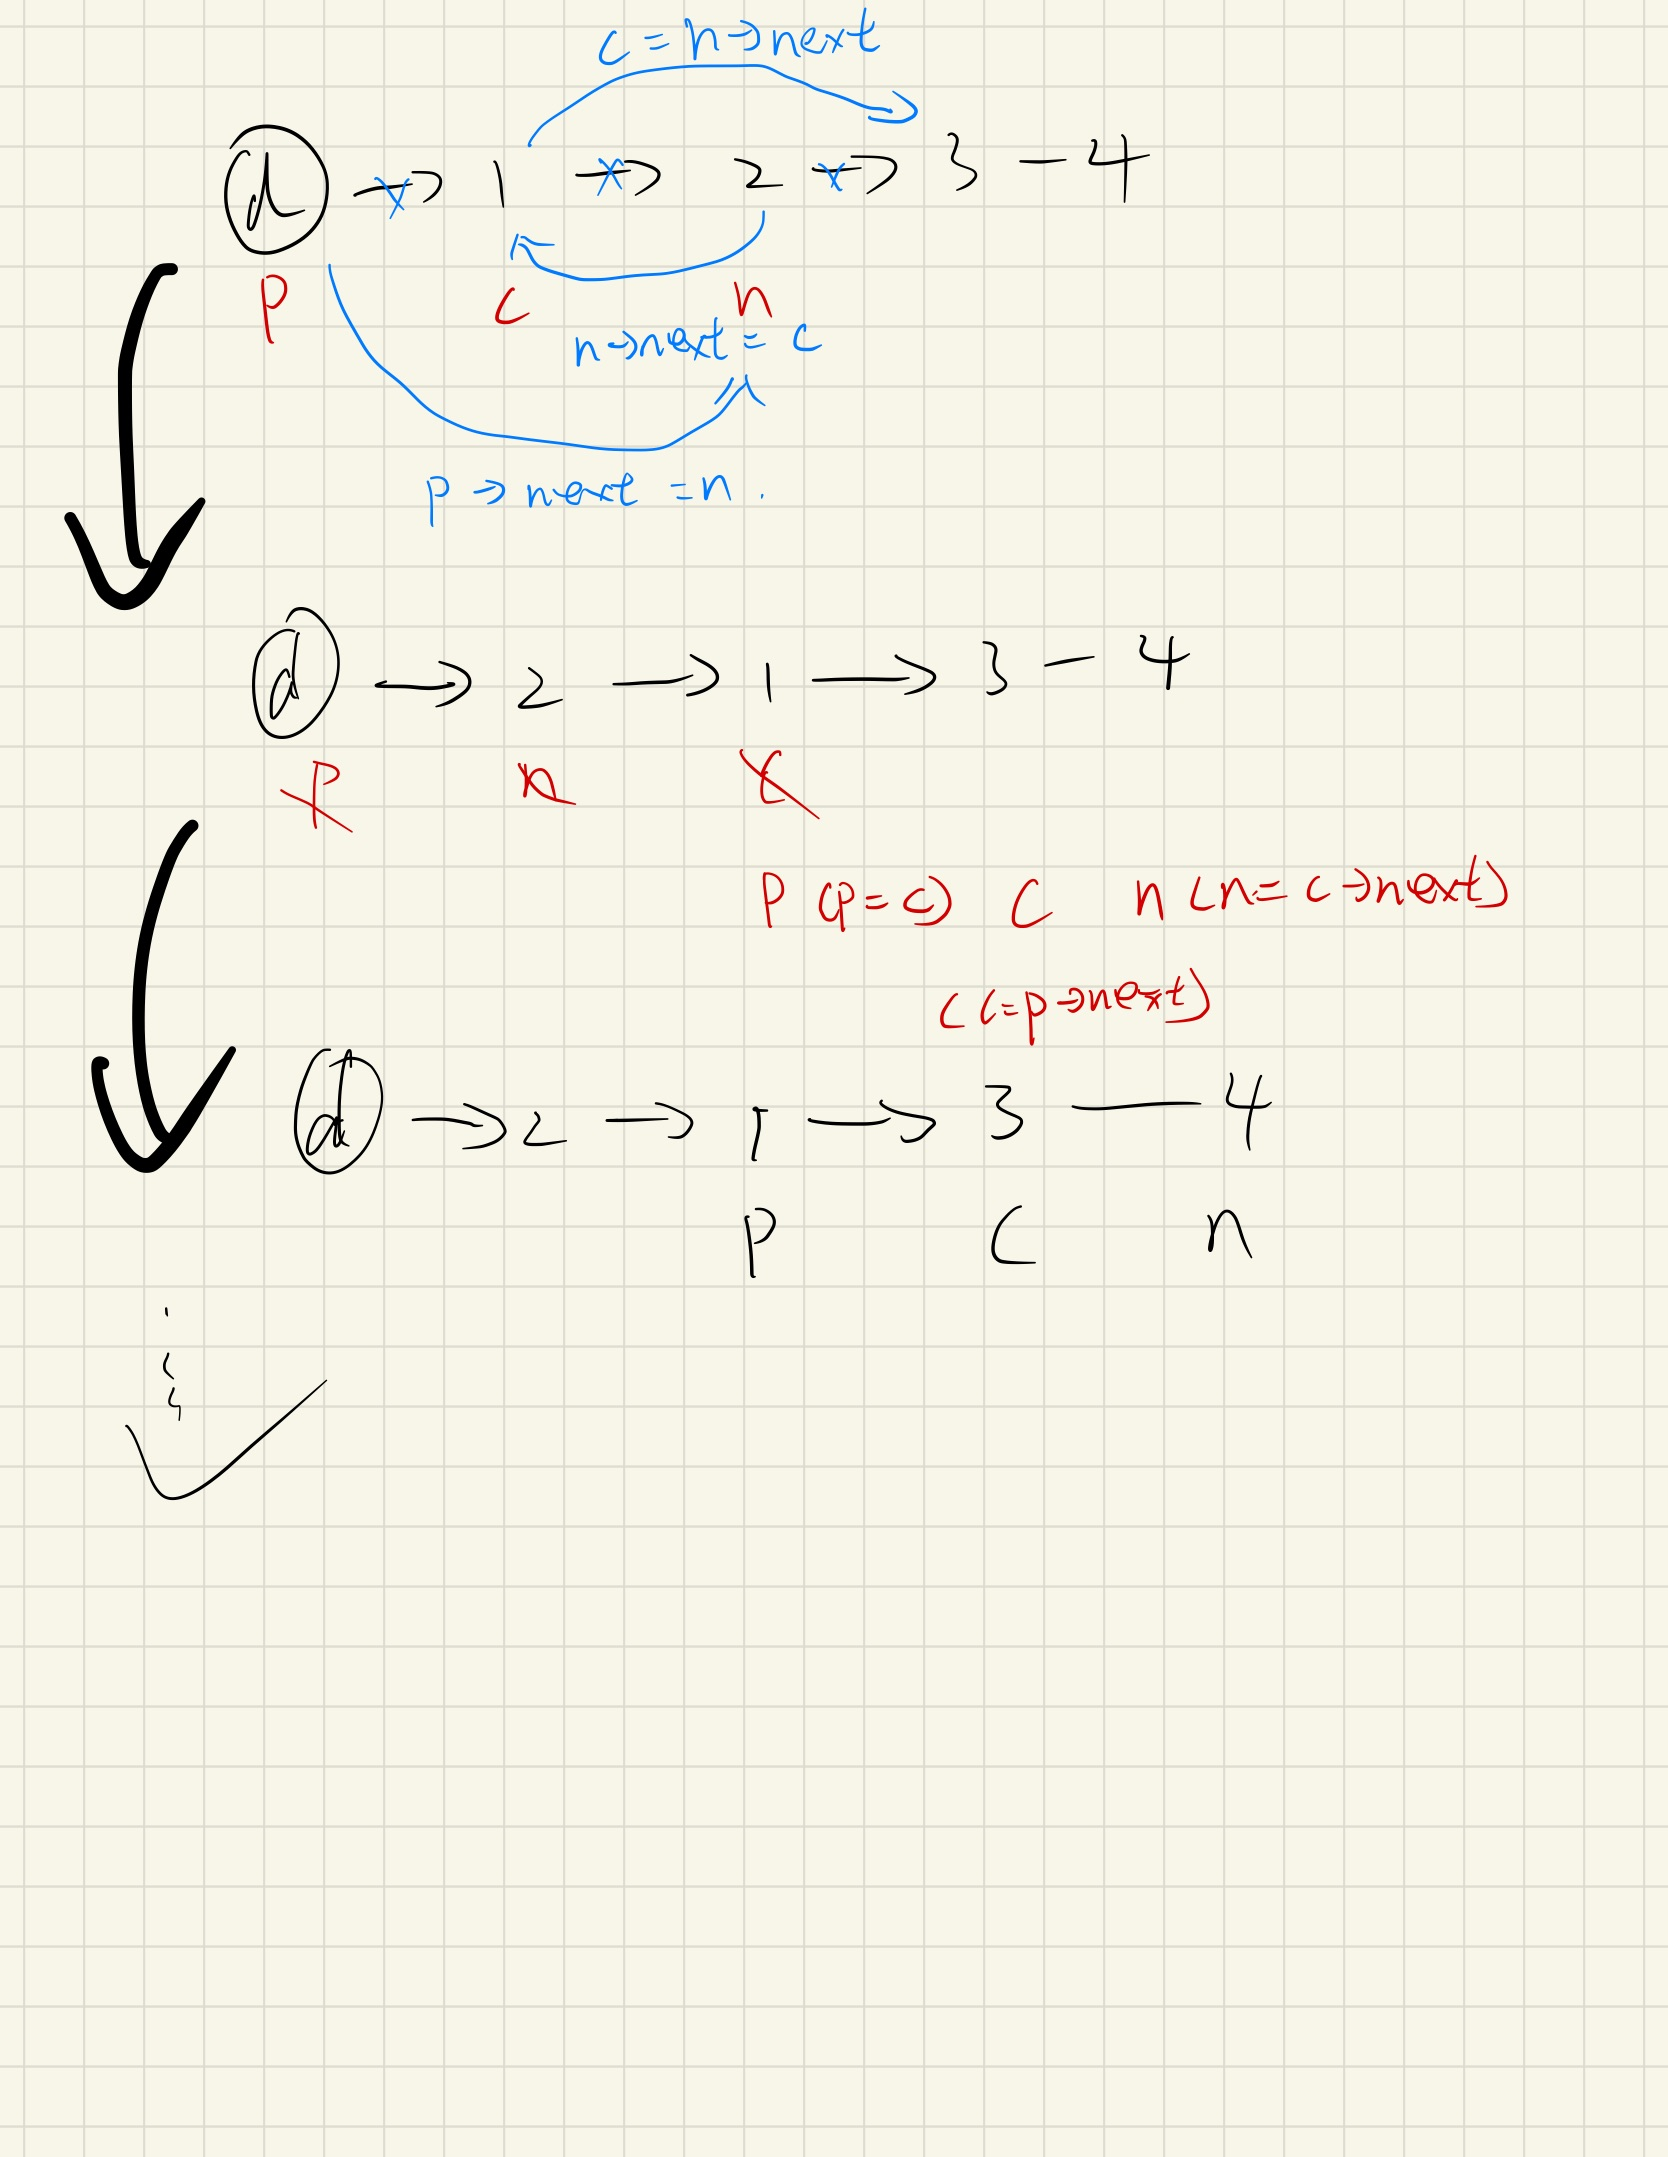 c = n→next
d → 1 → 2 → 3 — 4
p c n
n→next = c
p → next = n.
d → 2 → 1 → 3 — 4
p n c
p (p = c) c n (n = c→next)
(c=p→next)
d → 2 → 1 → 3 — 4
p c n